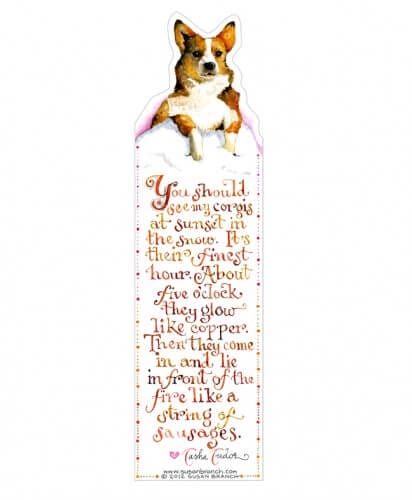 You should
see my corgis
at sunset in
the snow. It's
their finest
hour. About
five o'clock
they glow
like copper.
Then they come
in and lie
in front of the
fire like a
string of
sausages.
Tasha Tudor
www.susanbranch.com
© 2012 SUSAN BRANCH